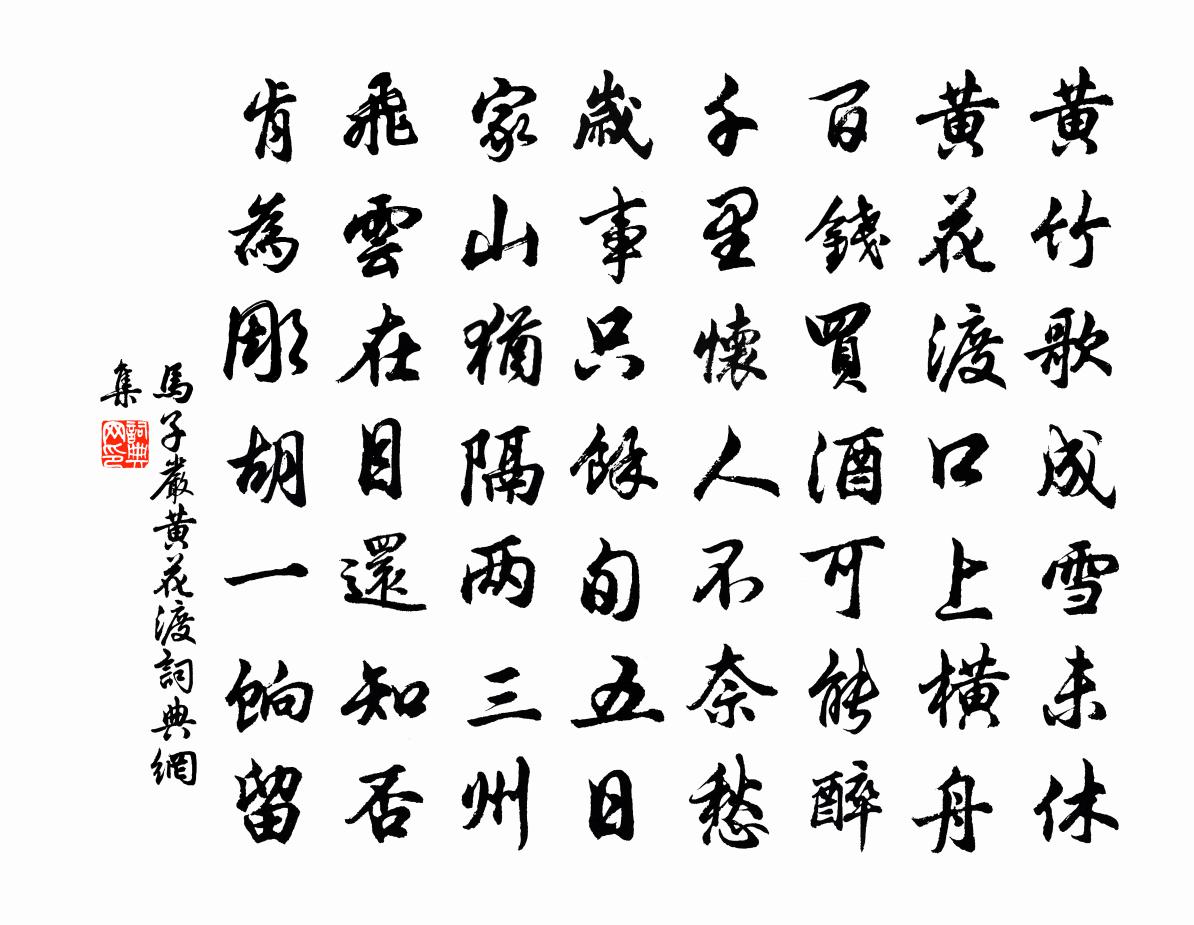 黃竹歌成雪未休
黃花渡口上橫舟
百錢買酒可能醉
千里懷人不奈愁
歲事只餘旬五日
家山猶隔兩三州
飛雲在目還知否
肯為彫胡一餉留
馬子嚴黃花渡詞典網
集
詞典
网印